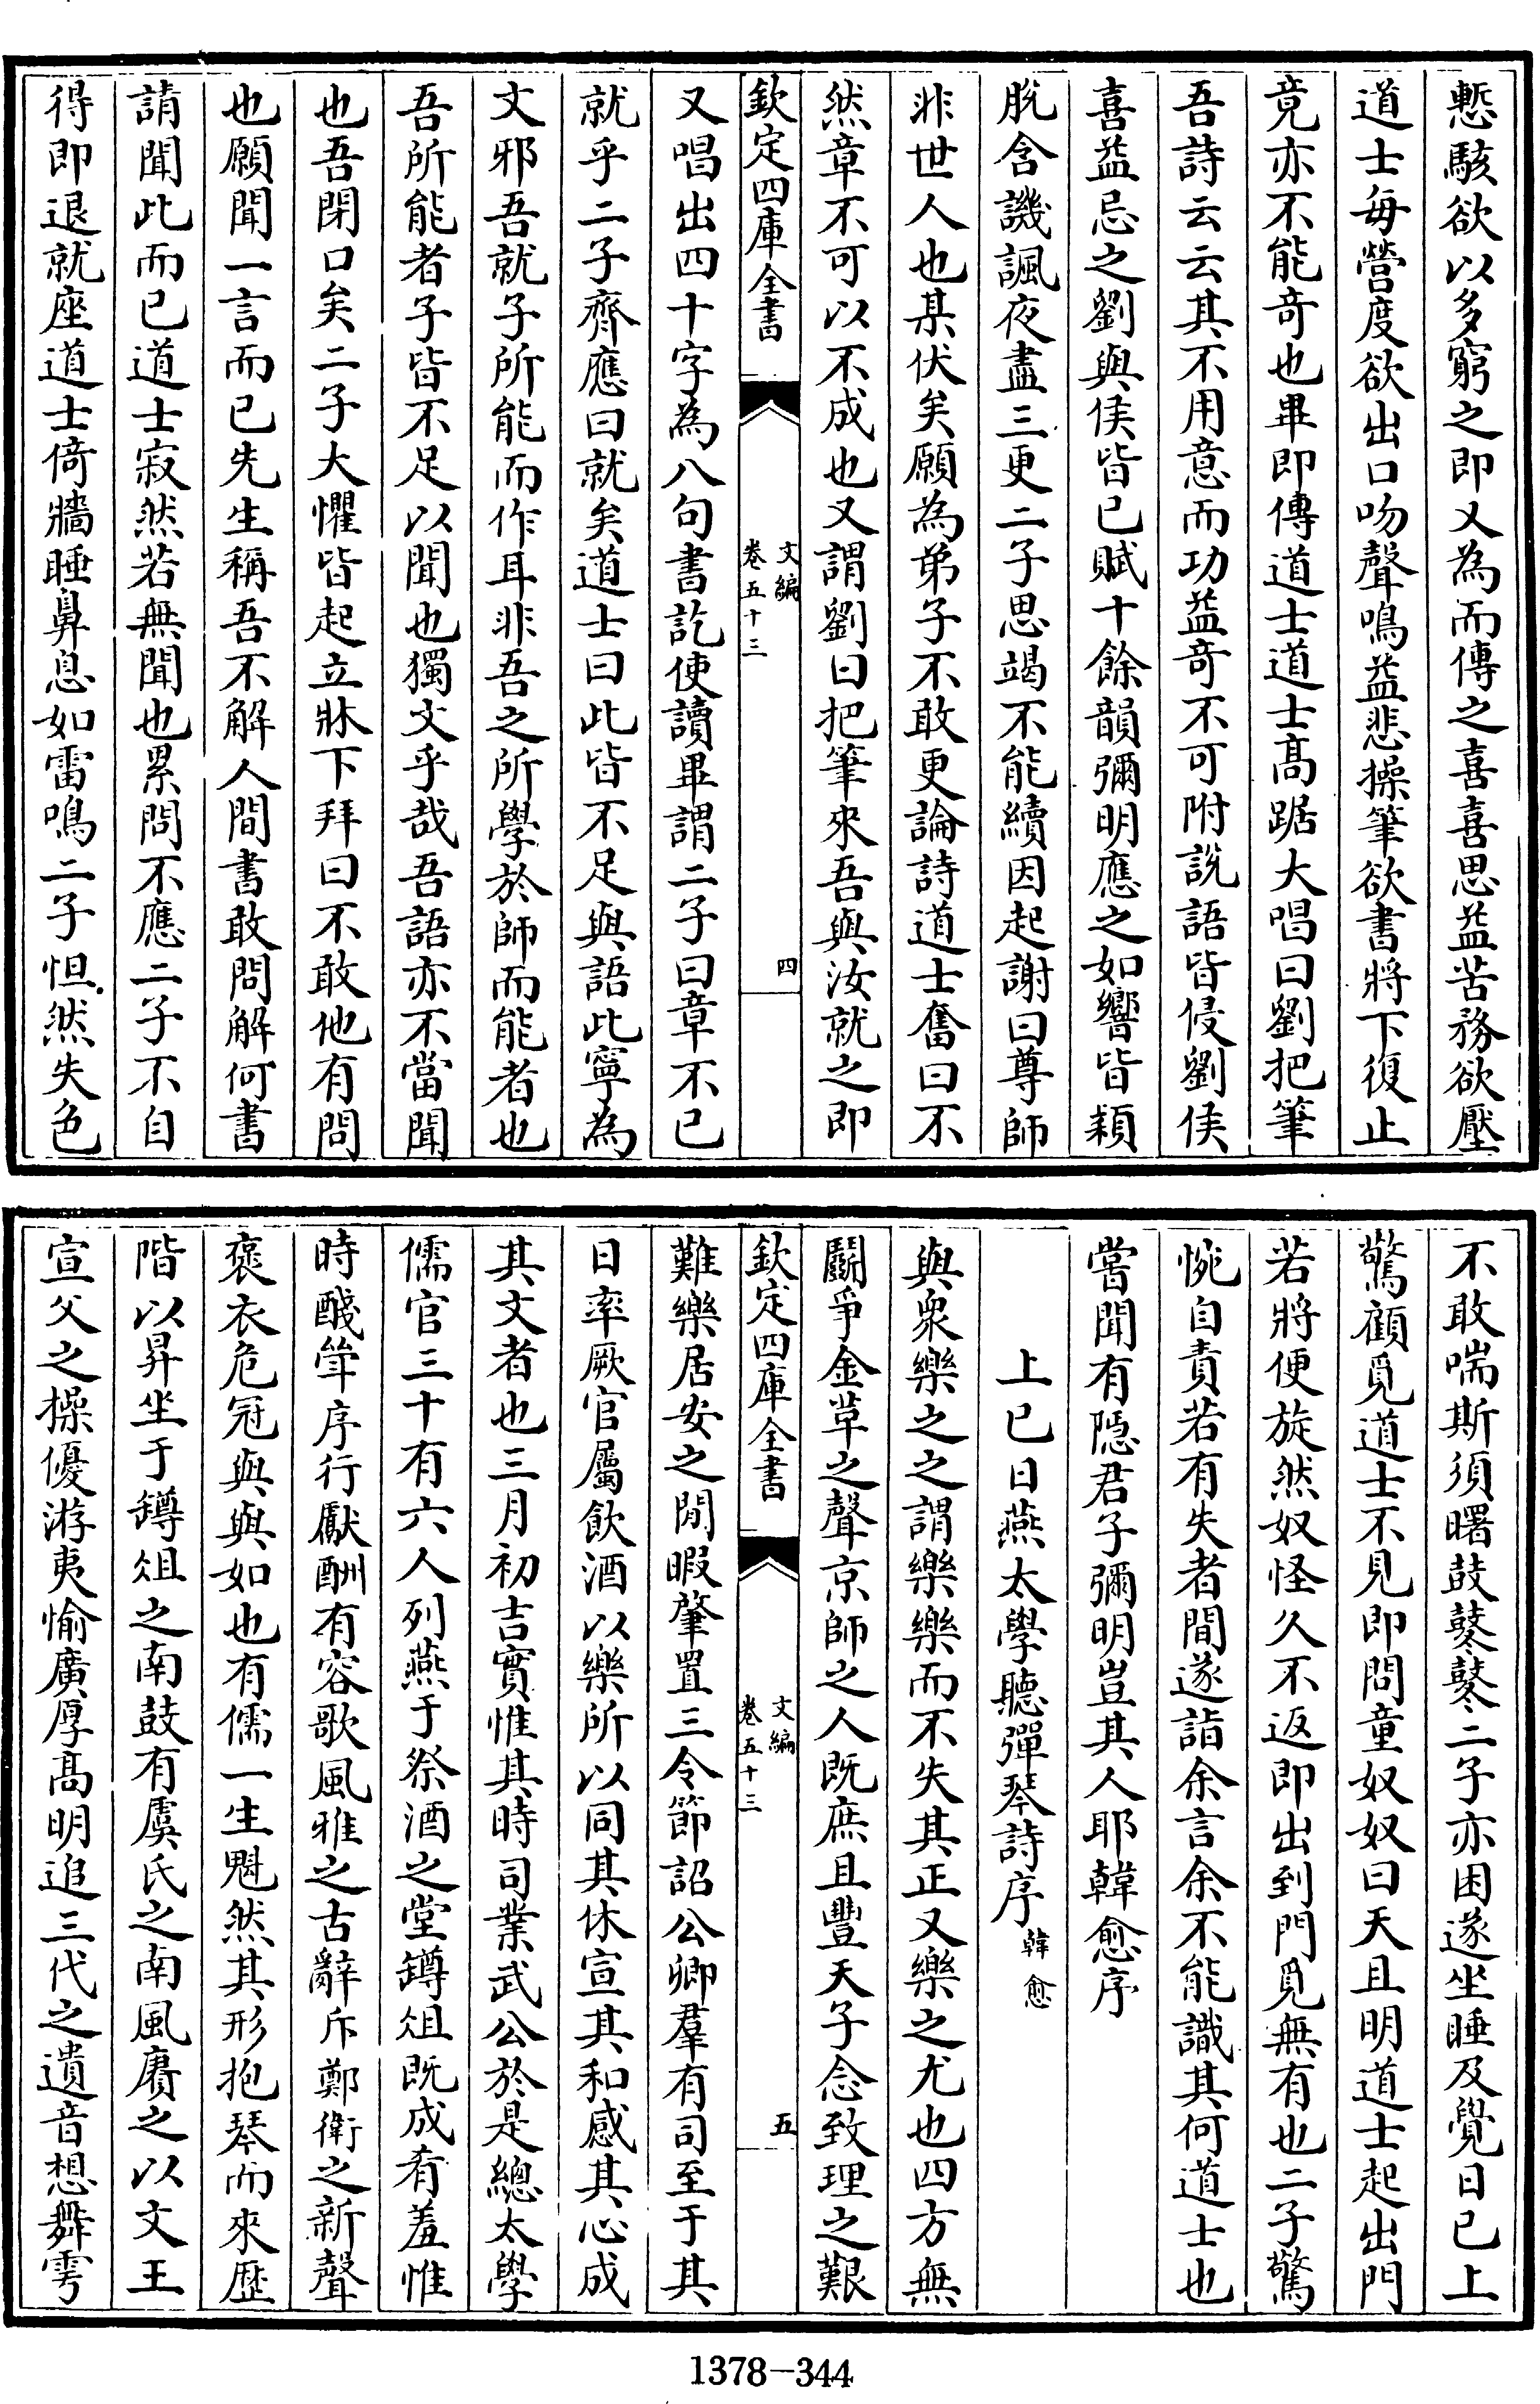 慙駭欲以多窮之即又為而傳之喜喜思益苦務欲壓
道士每營度欲出口吻聲鳴益悲操筆欲書將下復止
竟亦不能竒也畢即傳道士道士髙踞大唱曰劉把筆
吾詩云云其不用意而功益竒不可附説語皆侵劉侯
喜益忌之劉與侯皆已賦十餘韻彌明應之如響皆穎
脱含譏諷夜盡三更二子思竭不能續因起謝曰尊師
非世人也某伏矣願為弟子不敢更論詩道士奮曰不
然章不可以不成也又謂劉曰把筆來吾與汝就之即
欽定四庫全書
文編
卷五十三
四
又唱出四十字為八句書訖使讀畢謂二子曰章不已
就乎二子齊應曰就矣道士曰此皆不足與語此寧為
文邪吾就子所能而作耳非吾之所學於師而能者也
吾所能者子皆不足以聞也獨文乎哉吾語亦不當聞
也吾閉口矣二子大懼皆起立牀下拜曰不敢他有問
也願聞一言而已先生稱吾不解人間書敢問解何書
請聞此而已道士寂然若無聞也累問不應二子不自
得即退就座道士倚牆睡鼻息如雷鳴二子怛然失色
不敢喘斯須曙鼓鼕鼕二子亦困遂坐睡及覺日已上
驚顧覓道士不見即問童奴奴曰天且明道士起出門
若將便旋然奴怪久不返即出到門覓無有也二子驚
惋自責若有失者間遂詣余言余不能識其何道士也
嘗聞有隠君子彌明豈其人耶韓愈序
上巳日燕太學聽彈琴詩序韓愈
與衆樂之之謂樂樂而不失其正又樂之尤也四方無
鬬爭金革之聲京師之人既庶且豐天子念致理之艱
欽定四庫全書
文編
卷五十三
五
難樂居安之閒暇肇置三令節詔公卿羣有司至于其
日率厥官屬飲酒以樂所以同其休宣其和感其心成
其文者也三月初吉實惟其時司業武公於是總太學
儒官三十有六人列燕于祭酒之堂罇俎既成肴羞惟
時醆斝序行獻酬有容歌風雅之古辭斥鄭衛之新聲
褒衣危冠與與如也有儒一生魁然其形抱琴而來歴
階以昇坐于罇俎之南鼓有虞氏之南風賡之以文王
宣父之操優游夷愉廣厚髙明追三代之遺音想舞雩
1378-344